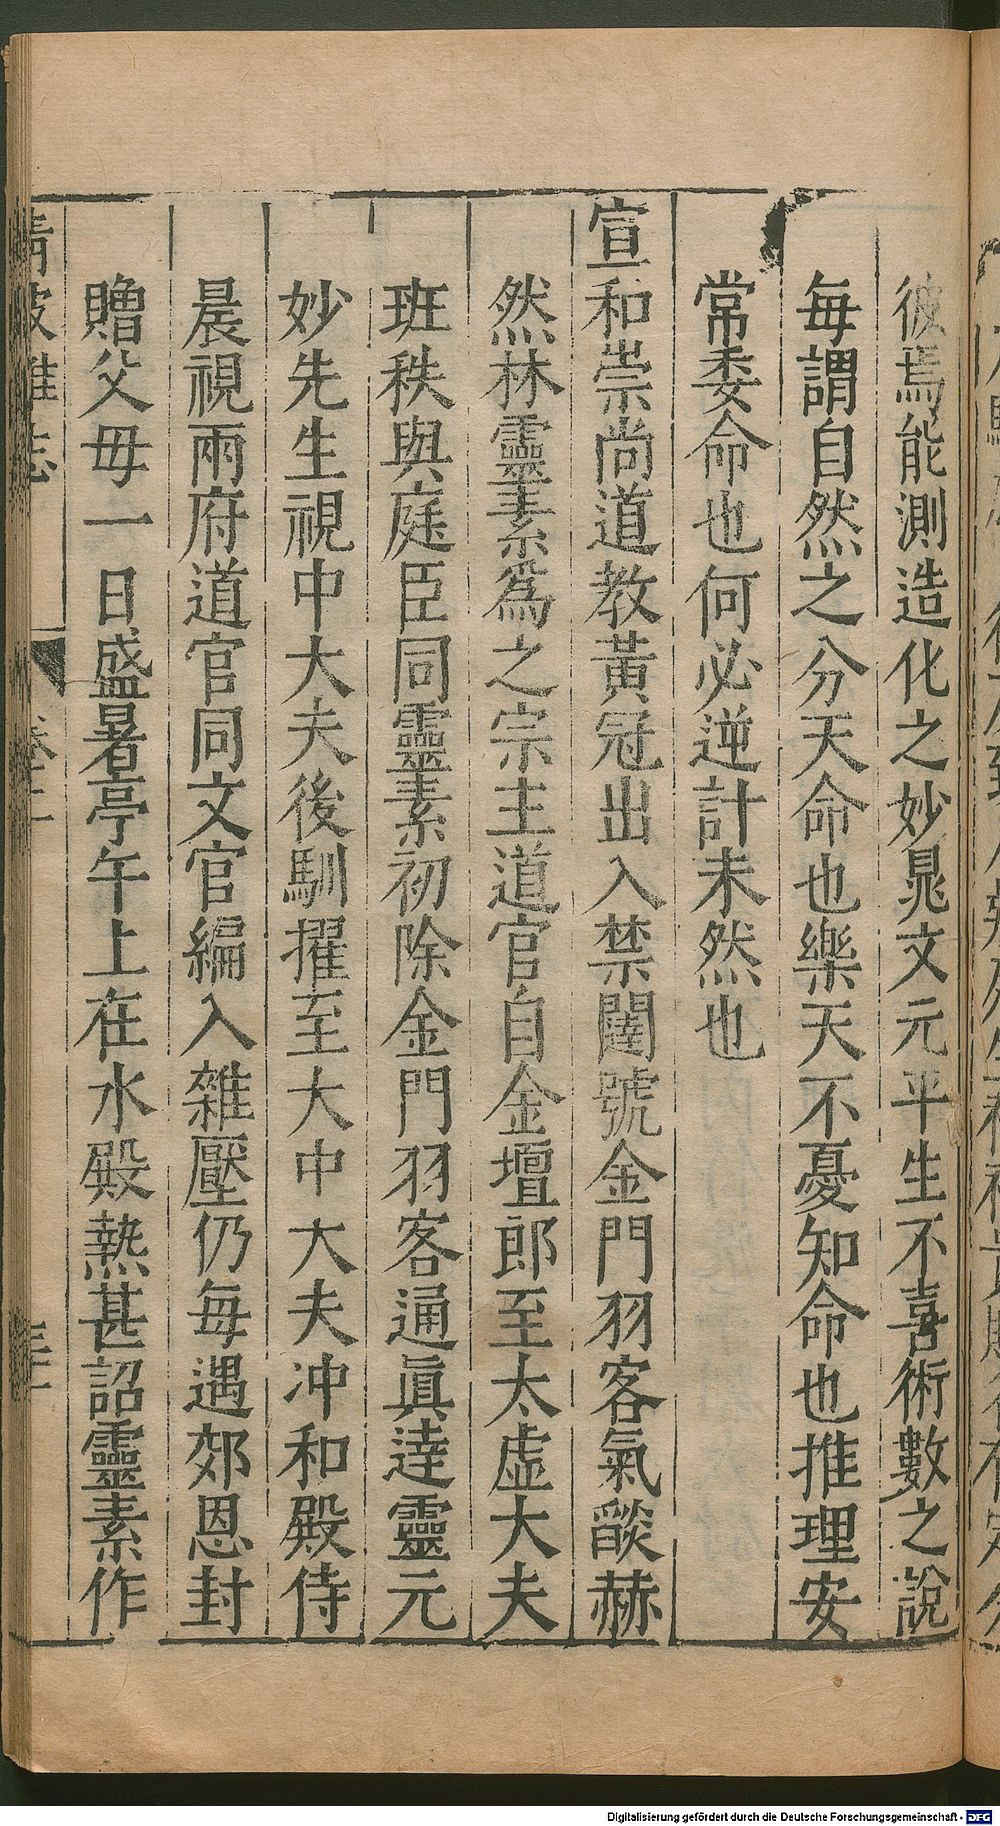 彼焉能測造化之妙晁文元平生不喜術數之說
每謂自然之分天命也樂天不憂知命也推理安
常委命也何必逆計未然也
宣和崇尚道教黃冠出入禁闥號金門羽客氣燄赫
然林靈素爲之宗主道官自金壇郎至太虛大夫
班秩與庭臣同靈素初除金門羽客通眞達靈元
妙先生視中大夫後馴擢至大中大夫冲和殿侍
晨視兩府道官同文官編入雜壓仍每遇郊恩封
贈父母一日盛暑亭午上在水殿熱甚詔靈素作
清波雜志
Digitalisierung gefördert durch die Deutsche Forschungsgemeinschaft - DFG